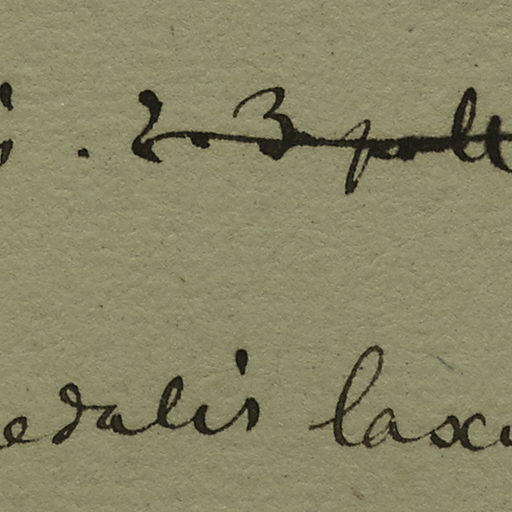 . 2-3 poll
edalis laxi